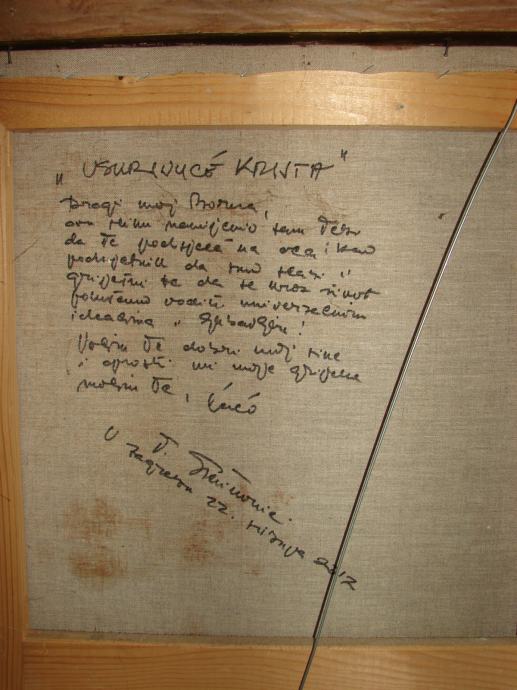 „USKRSNUĆE KRISTA"
Dragi moj Borna,
ovu sliku namijenio sam Tebi
da Te podsjeća na oca i kao
podsjetnik da smo slabi i
griješni te da se kroz život
pokušamo voditi univerzalnim
idealima
Volim Te dobri moj sine
i oprosti mi moje grijehe
molim Te, Ćaćo
T.
U Zagrebu 22. siječnja 2012